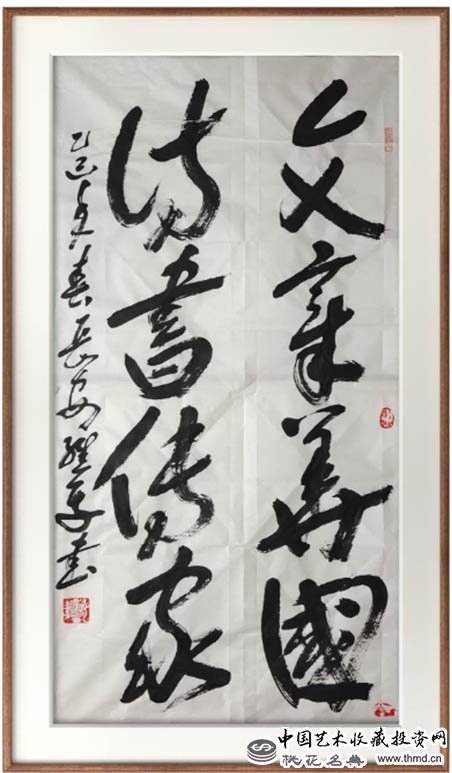 文章華國
詩書傳家
乙巳 春長安 書
中国艺术收藏投资网
桃花名典 www.thmd.cn